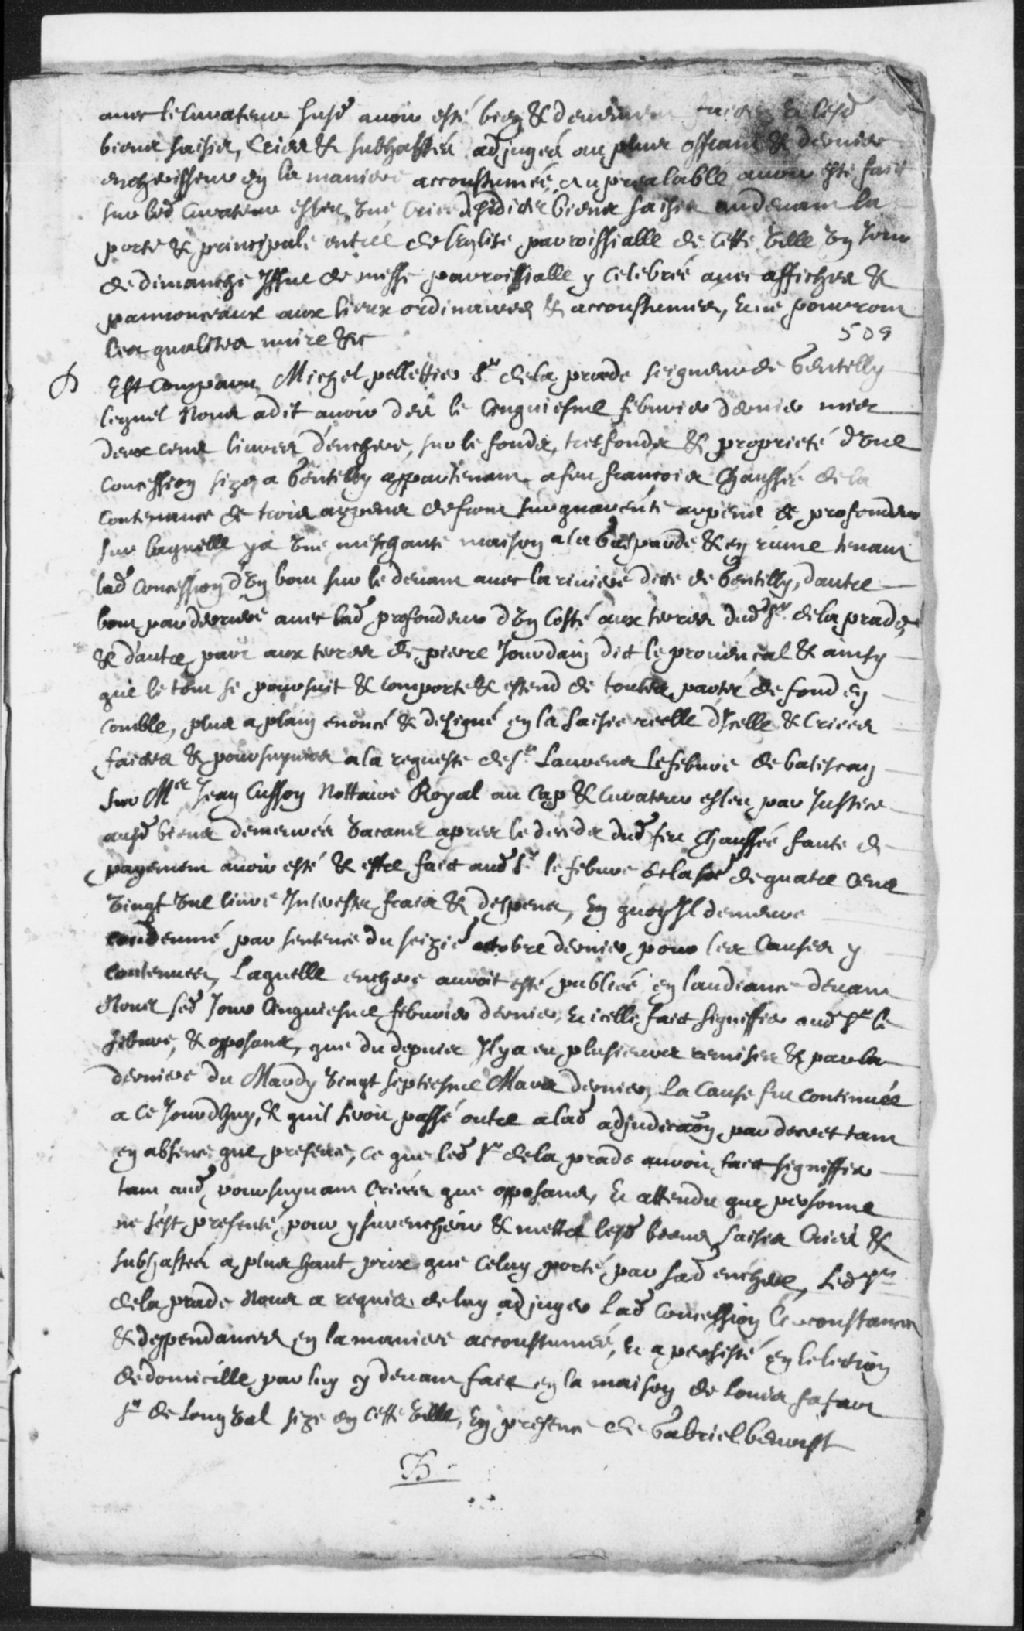 avec le Curateur susd avoir esté bien & deuement & lesd
biens saisis, Criés & subhastés adjugés au plus offrant & dernier
encherisseur en la maniere accoustumée, au prealable avoir esté fait
sur led Curateur esleu une Criée desdits biens saisis au devant la
porte & principale entrée de leglise parroissialle de Cette Ville un Jour
de dimanche Issue de messe parroissialle y Celebrée avec affiches &
pannonceaux aux lieux ordinaires & accoustumés, & ne pourront
509
les qualités nuire &c
Est Comparu Michel pelletier Sr de la prade seigneur de Gentilly
lequel Nous a dit avoir des le Cinquiesme febvrier dernier mis
deux cens livres d'enchere, sur le fonds, tresfonds & proprieté d'une
Concession size a Gentilly appartenant a feu francois Chaussé de la
Contenance de trois arpens de front sur quarente arpens de profondeur
sur laquelle y a une meschante maison a la & en ruine tenant
lad Concession d'un bout sur le devant avec la riviere dite de Gentilly, d'autre
bout par derriere avec lad profondeur d'un Costé aux terres dud Sr de la prade
& d'autre part aux terres de pierre Jourdain dit le provencal & ainsy
que le tout se poursuit & comporte & estend de toutes parts de fond en
comble, plus a plain enoncé & designé en la saisie reelle d'Icelle & Criées
faictes & poursuyvies a la requeste de Sr Laurens Lefebvre de batiscan
sur Mer Jean Cusson Nottaire Royal au Cap & Curateur esleu par Justice
ausd biens demeurés vacans apres le deceds dud feu Chaussé faute de
payement avoir esté & estre fait aud Sr lefebvre de la soe de quatre cens
vingt une livre Interests frais & despens, En quoy Il demeure
condemné par sentence du seizie octobre dernier pour les Causes y
contenues, Laquelle enchere auroit esté publiée en laudiance devant
Nous led Jour Cinquiesme febvrier dernier, & icelle fait signiffier aud Sr le
febvre, & opposans, que du depuis Il y a eu plusieurs remises & par la
derniere du Mardy vingt septiesme Mars dernier, la Cause fut continuée
a Ce Jourd'huy, & quil seroit passé outre a lad adjudicaon par decret tant
en absence que presence, Ce que led Sr de la prade auroit fait signiffier
tant aud poursuyvant Criées que opposans, Et attendu que personne
ne s'est presenté pour y surencherir & mettre lesd biens saisis Criés &
subhastés a plus haut prix que Celuy porté par sad enchere, Led Sr
de la prade Nous a requis de luy adjuger Lad Concession Circonstances
& deppendances en la maniere accoustumée, & a persisté en lelection
de domicille par luy cy devant fait en la maison de Louis fafart
Sr de Longval size en Cette Ville, En presence de Gabriel benoist